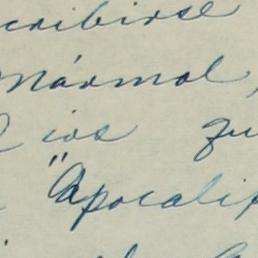 cribirse
Mármol,
ios qu
"Apocalip